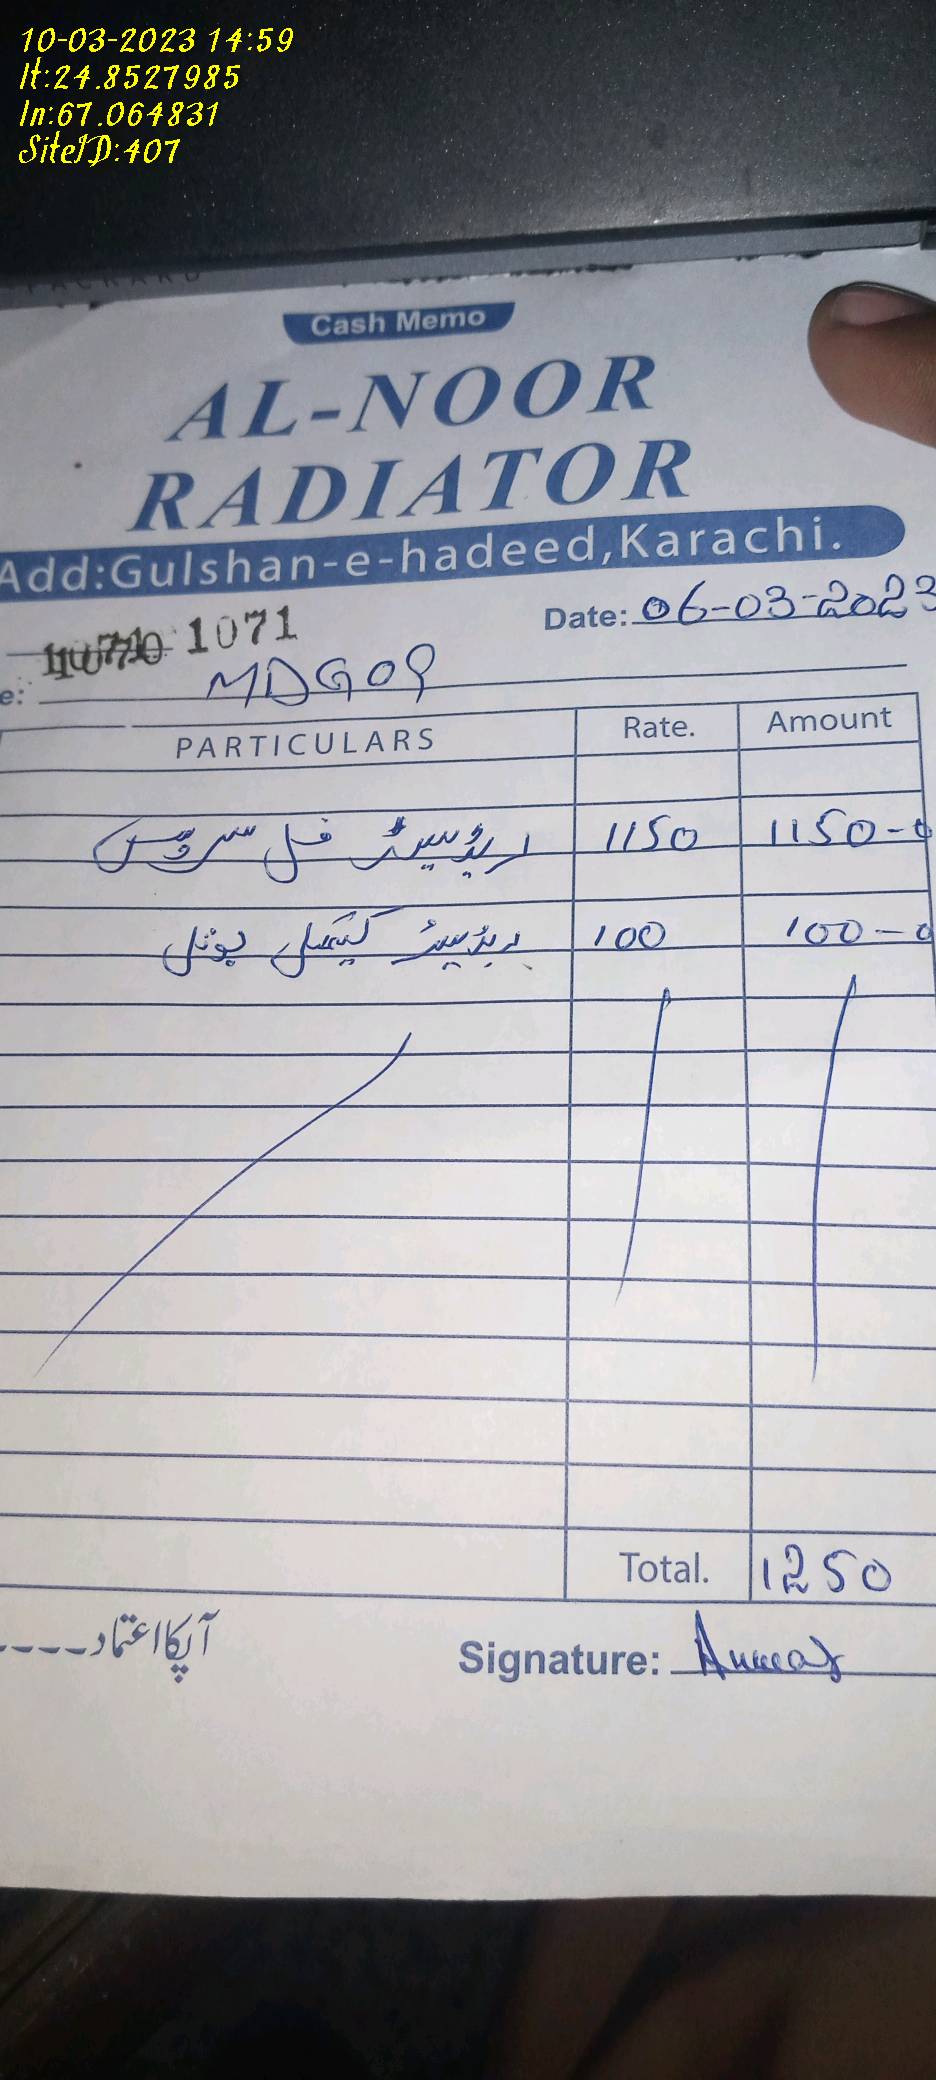 10-03-2023 14:59
lt:24.8527985
ln:67.064831
SiteID:407
PACKARD
Cash Memo
AL-NOOR
RADIATOR
Add:Gulshan-e-hadeed,Karachi.
1071
Date: 06-03-2023
e: MDG09
PARTICULARS Rate. Amount
ریڈیٹر فل سروس 1150 1150-0
ریڈیٹر کیمکل بوتل 100 100-0
Total. 1250
آپکا اعتماد----
Signature: